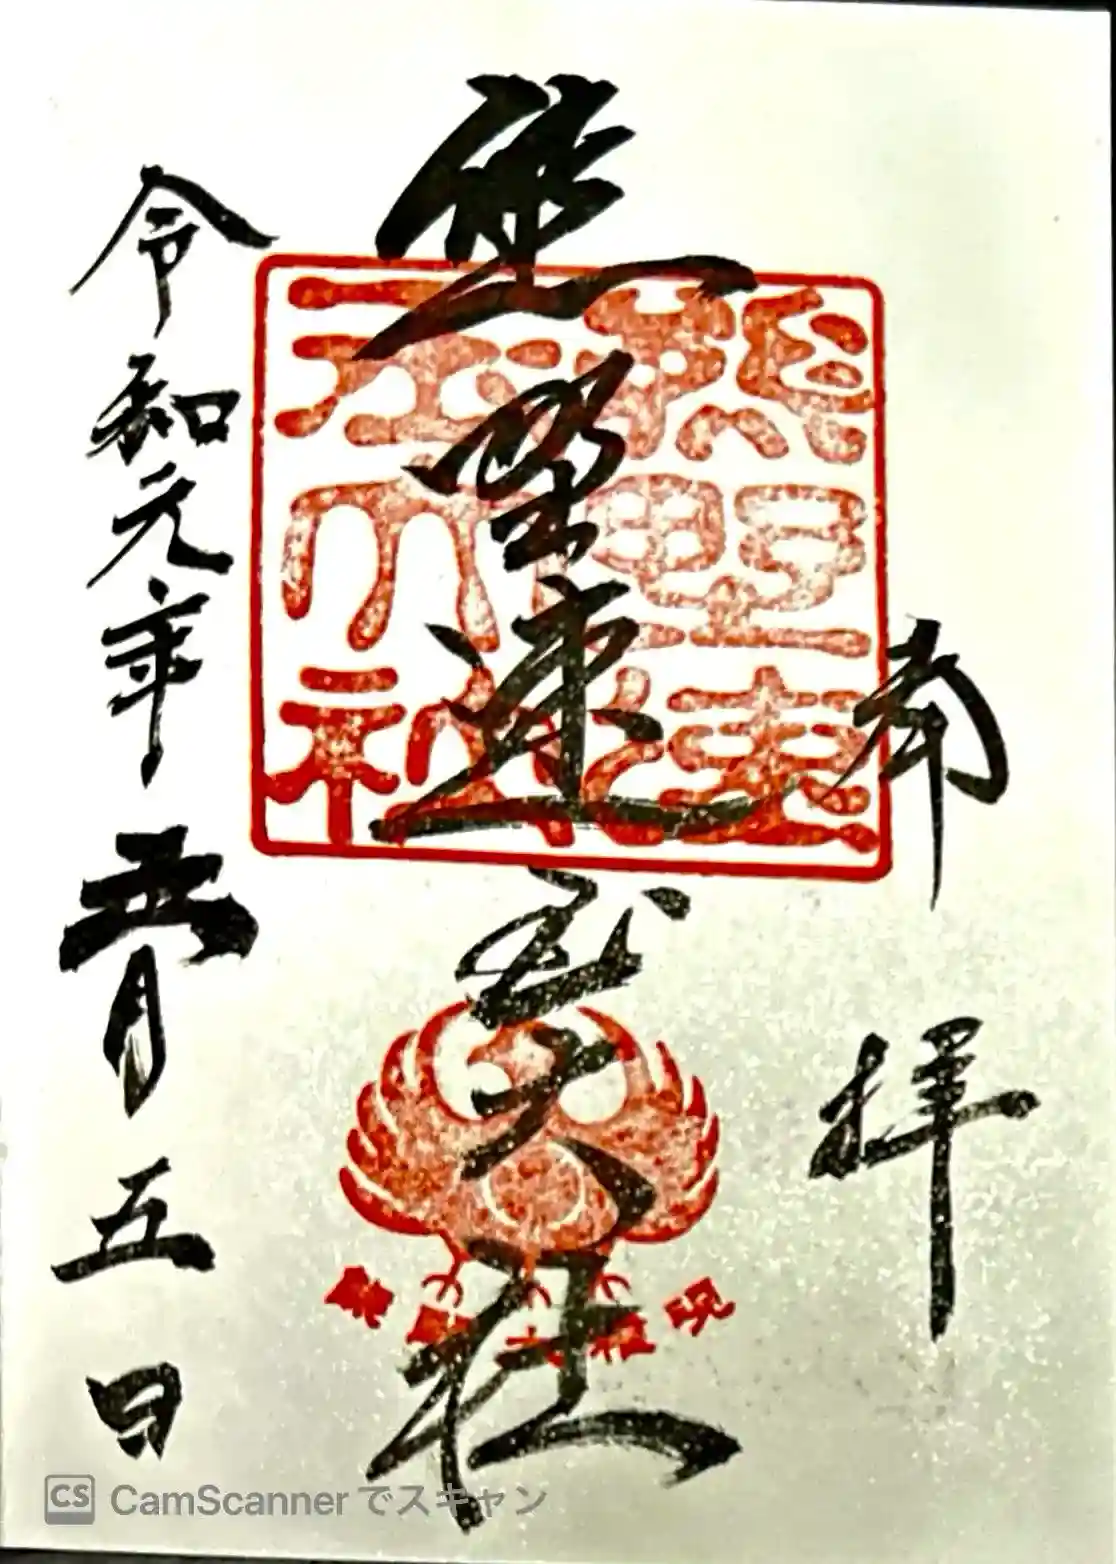 奉拝
熊野速玉大社
熊野速玉大社
熊野大権現
令和元年五月五日
CS CamScannerでスキャン